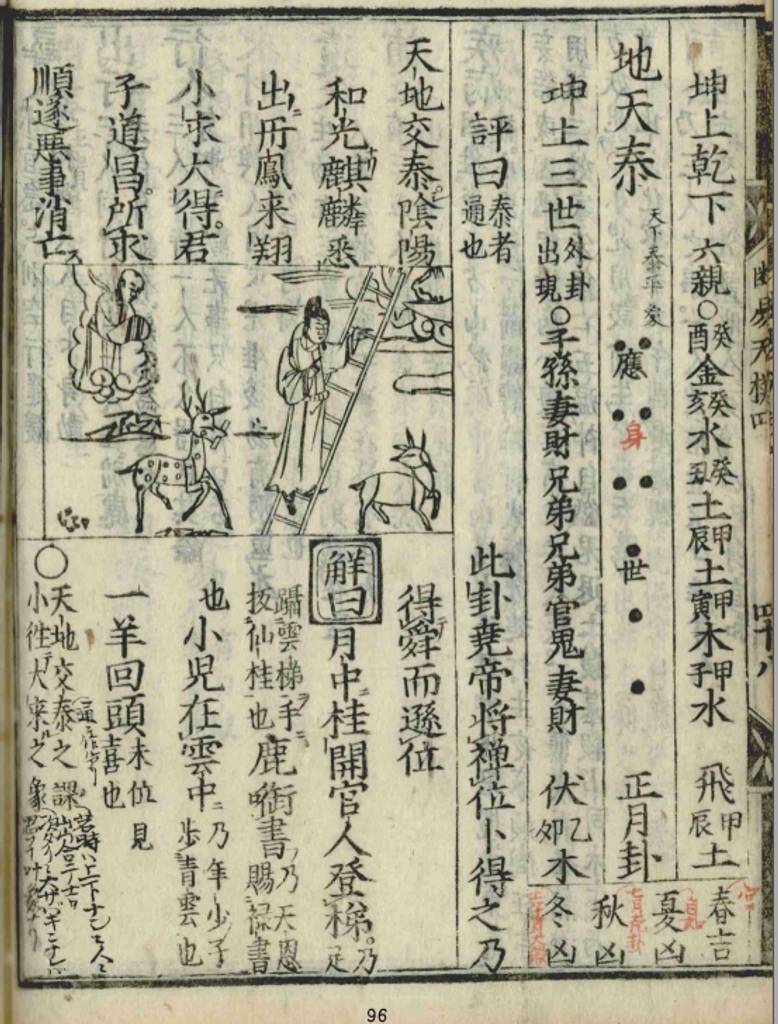 坤上乾下 六親○癸酉金癸亥水癸丑土甲辰土甲寅木甲子水 飛甲辰土
春吉
夏凶
秋凶
冬凶
地天泰 天下泰平象 應 身 世 正月卦
坤土三世外卦出現○子孫妻財兄弟兄弟官鬼妻財 伏乙卯木
評曰泰者通也 此卦堯帝将禅位卜得之乃
得舜而遜位
天地交泰陰陽
和光麒麟悉
出丹鳳来翔
小求大得君
子道昌所求
順遂悪事消亡
解曰月中桂開官人登梯乃足
躡雲梯手扳仙桂也鹿啣書乃天恩賜禄書
也小児在雲中乃年少子歩青雲也
一羊回頭未位見喜也
○天地交泰之課
小往大来之象
四十八
96